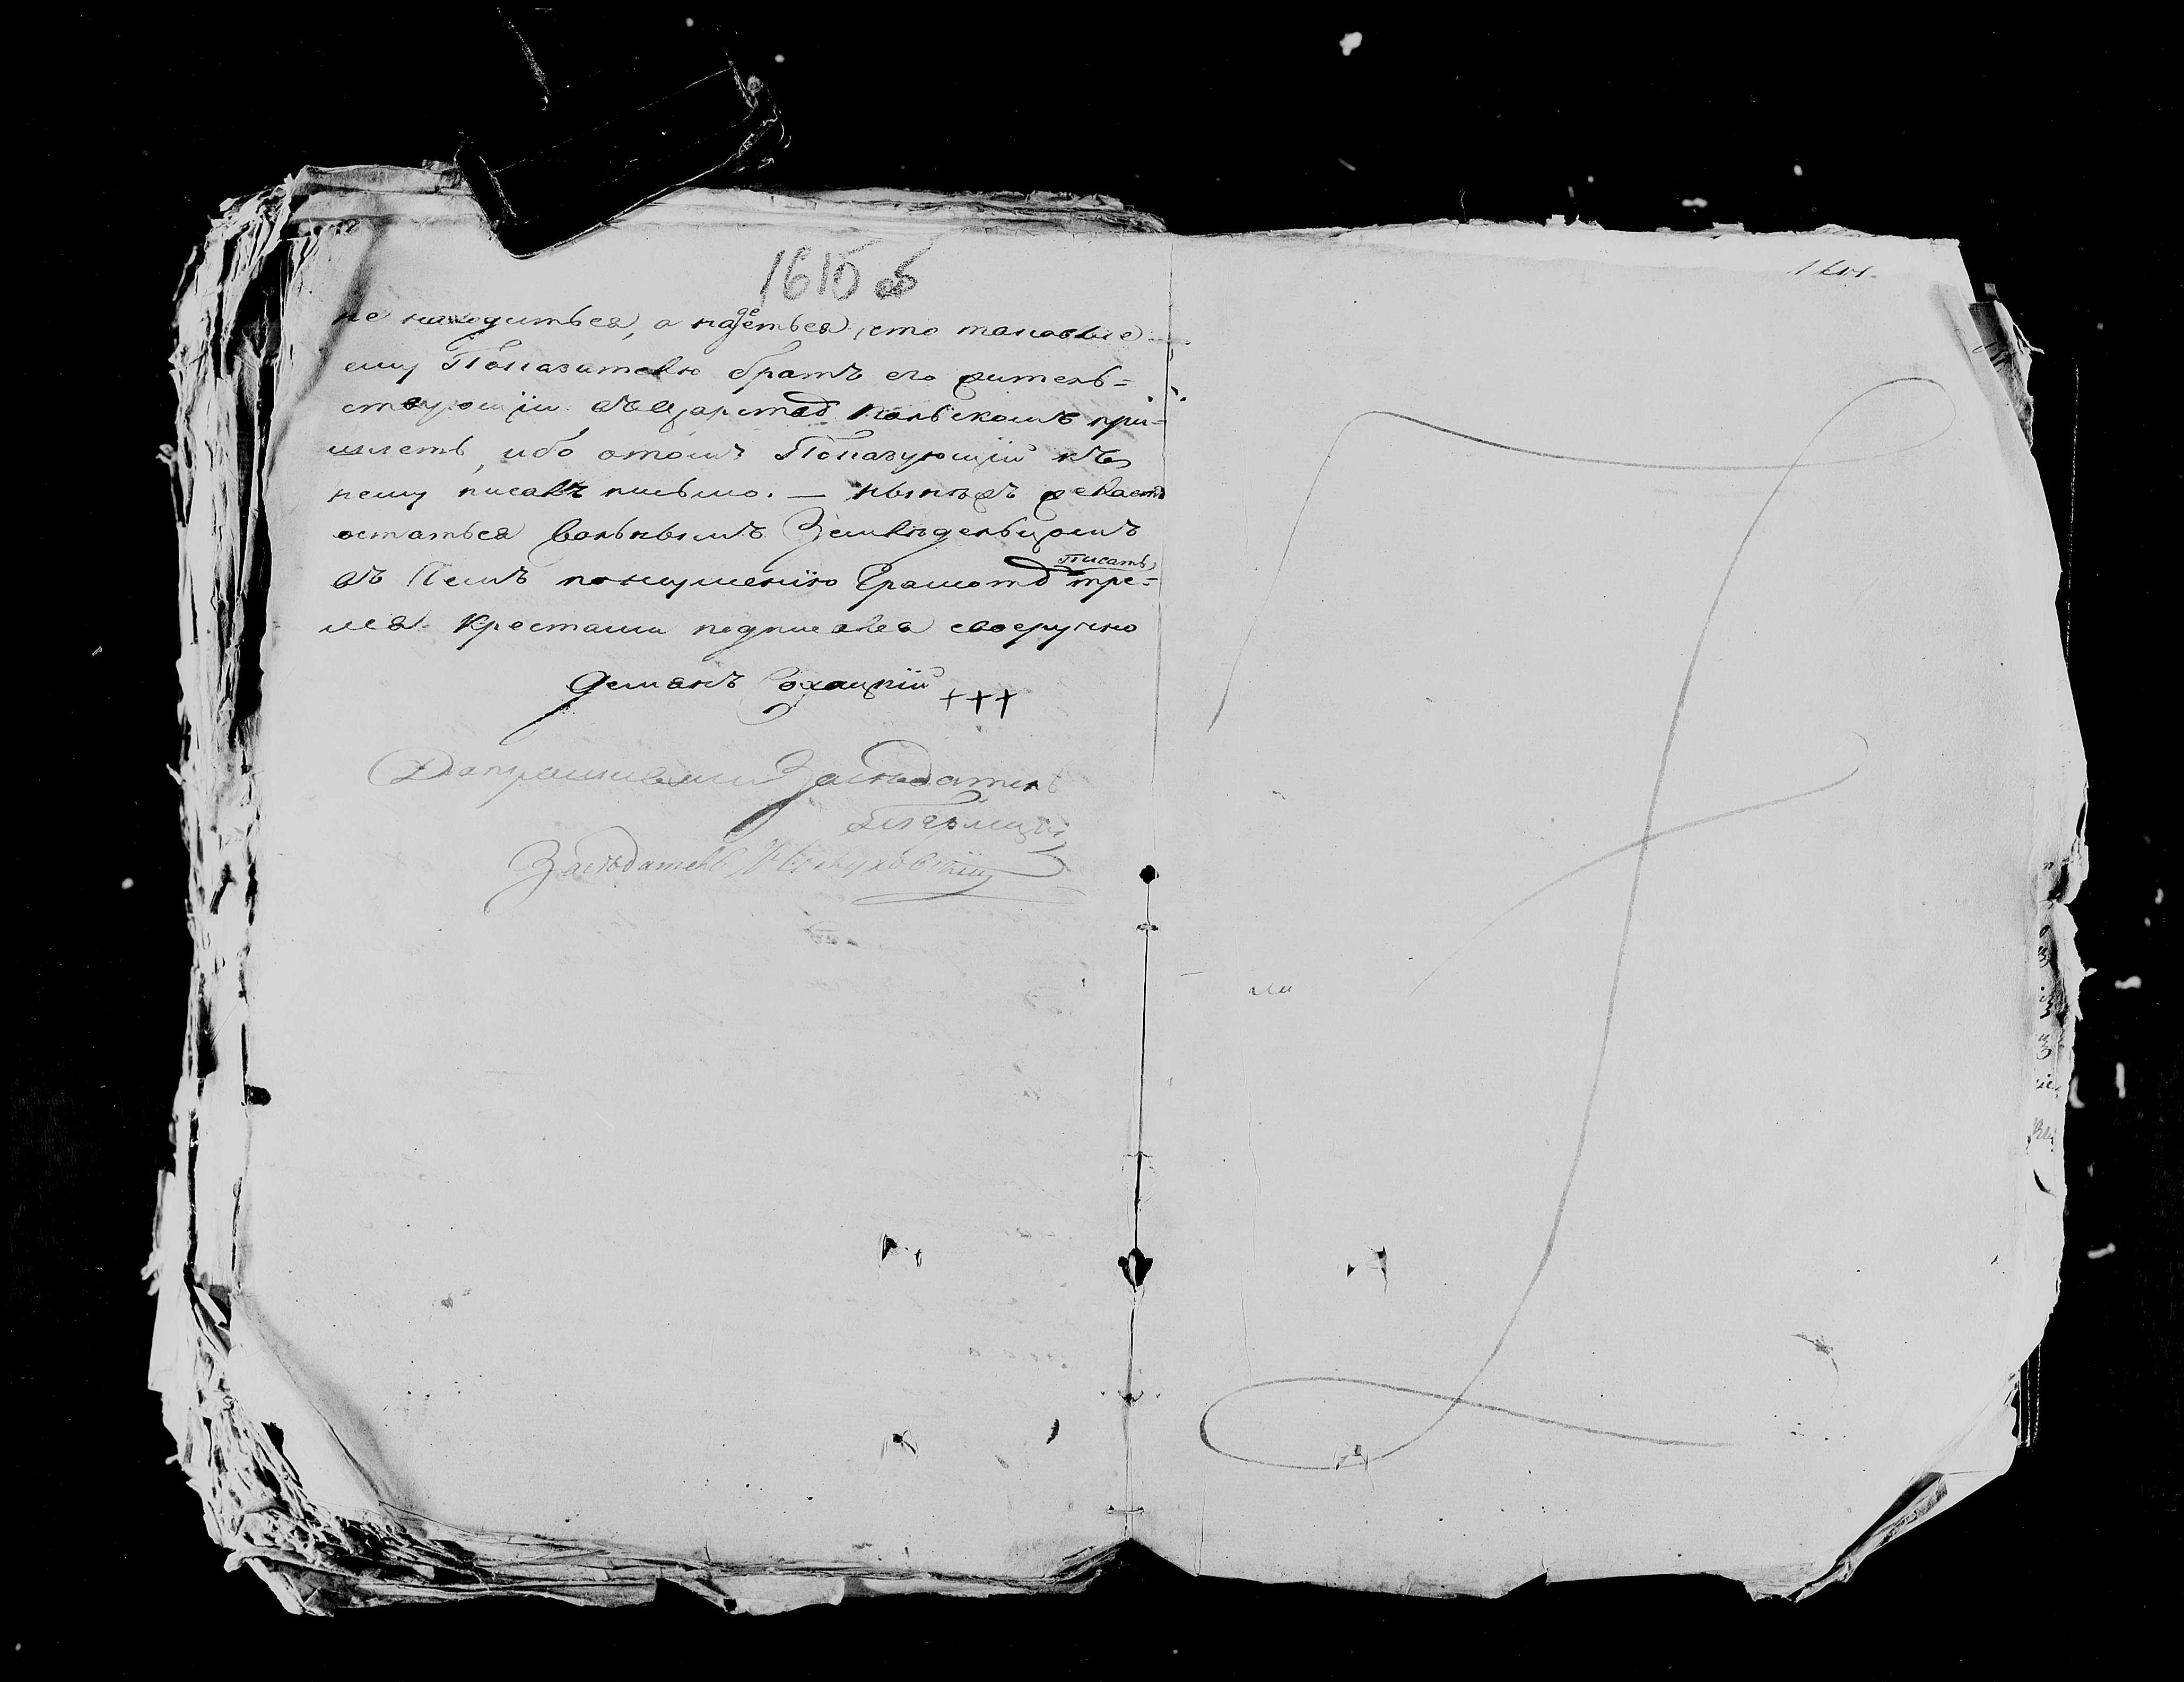 1610 об
не находиться, а надеется, что таковые
ему Показателю братъ его житель=
ствующій въ Царствѣ Польскомъ при=
шлетъ, ибо отомъ Показующій къ
нему писалъ письмо. — нынѣжъ желаетъ
остаться вольнымъ Земледельцомъ
въ чемъ понеумѣнію Грамотѣ писать, тре=
мя крестами подписался своеручно
Демянъ Сохацкій +++
Допрашивали Заседатель
Заседатель